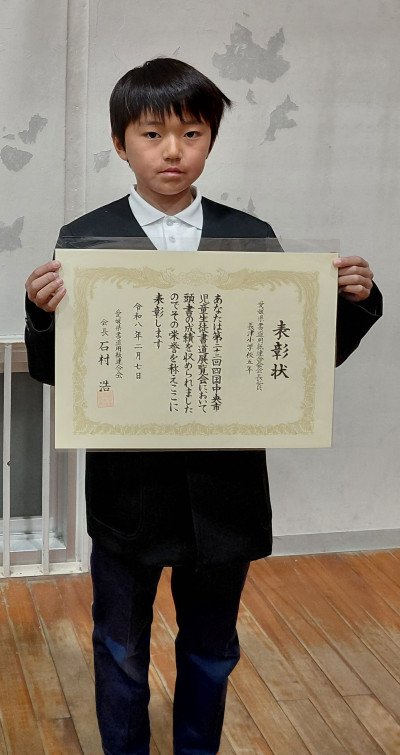 表彰状
愛媛県書道用紙連合会会長賞
長津小学校五年
あなたは第二十二回四国中央市
児童生徒書道展覧会において
頭書の成績を収められました
のでその栄誉を称えここに
表彰します
令和八年二月七日
愛媛県書道用紙連合会
会長 石村 浩